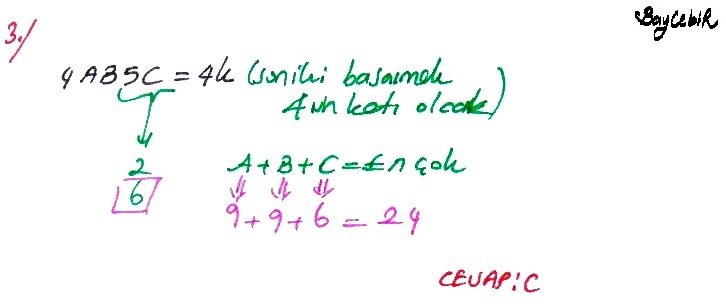 BayCebiR
3./
4AB5C = 4k (son iki basamak
4'ün katı olacak)
2
6
A + B + C = En çok
9 + 9 + 6 = 24
CEVAP: C